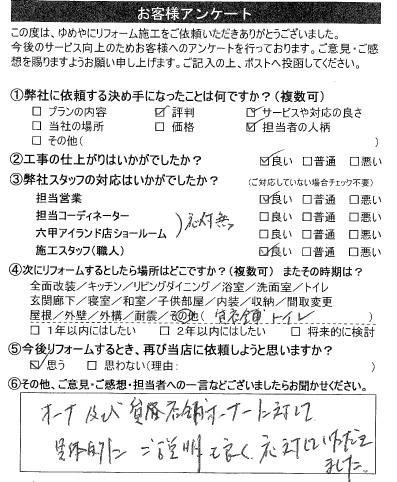 お客様アンケート
この度は、ゆめやにリフォーム施工をご依頼いただきありがとうございました。
今後のサービス向上のためお客様へのアンケートを行っております。ご意見・ご感
想を賜りますようお願い申し上げます。ご記入の上、ポストへ投函してください。
①弊社に依頼する決め手になったことは何ですか？(複数可)
□プランの内容 ☑評判 ☑サービスや対応の良さ
□当社の場所 □価格 ☑担当者の人柄
□その他( )
②工事の仕上がりはいかがでしたか？ ☑良い □普通 □悪い
③弊社スタッフの対応はいかがでしたか？ (ご対応していない場合チェック不要)
担当営業 ☑良い □普通 □悪い
担当コーディネーター □良い □普通 □悪い
六甲アイランド店ショールーム )応対無 □良い □普通 □悪い
施工スタッフ(職人) ☑良い □普通 □悪い
④次にリフォームするとしたら場所はどこですか？(複数可) またその時期は？
全面改装／キッチン／リビングダイニング／浴室／洗面室／トイレ
玄関廊下／寝室／和室／子供部屋／内装／収納／間取変更
屋根／外壁／外構／耐震／その他( 店舗トイレ )
□1年以内にはしたい □2年以内にはしたい □将来的に検討
⑤今後リフォームするとき、再び当店に依頼しようと思いますか？
☑思う □思わない(理由: )
⑥その他、ご意見・ご感想・担当者への一言などございましたらお聞かせください。
オーナ及び 店舗オーナーに対して
具体的に ご説明 良く 応対していただき
ました。